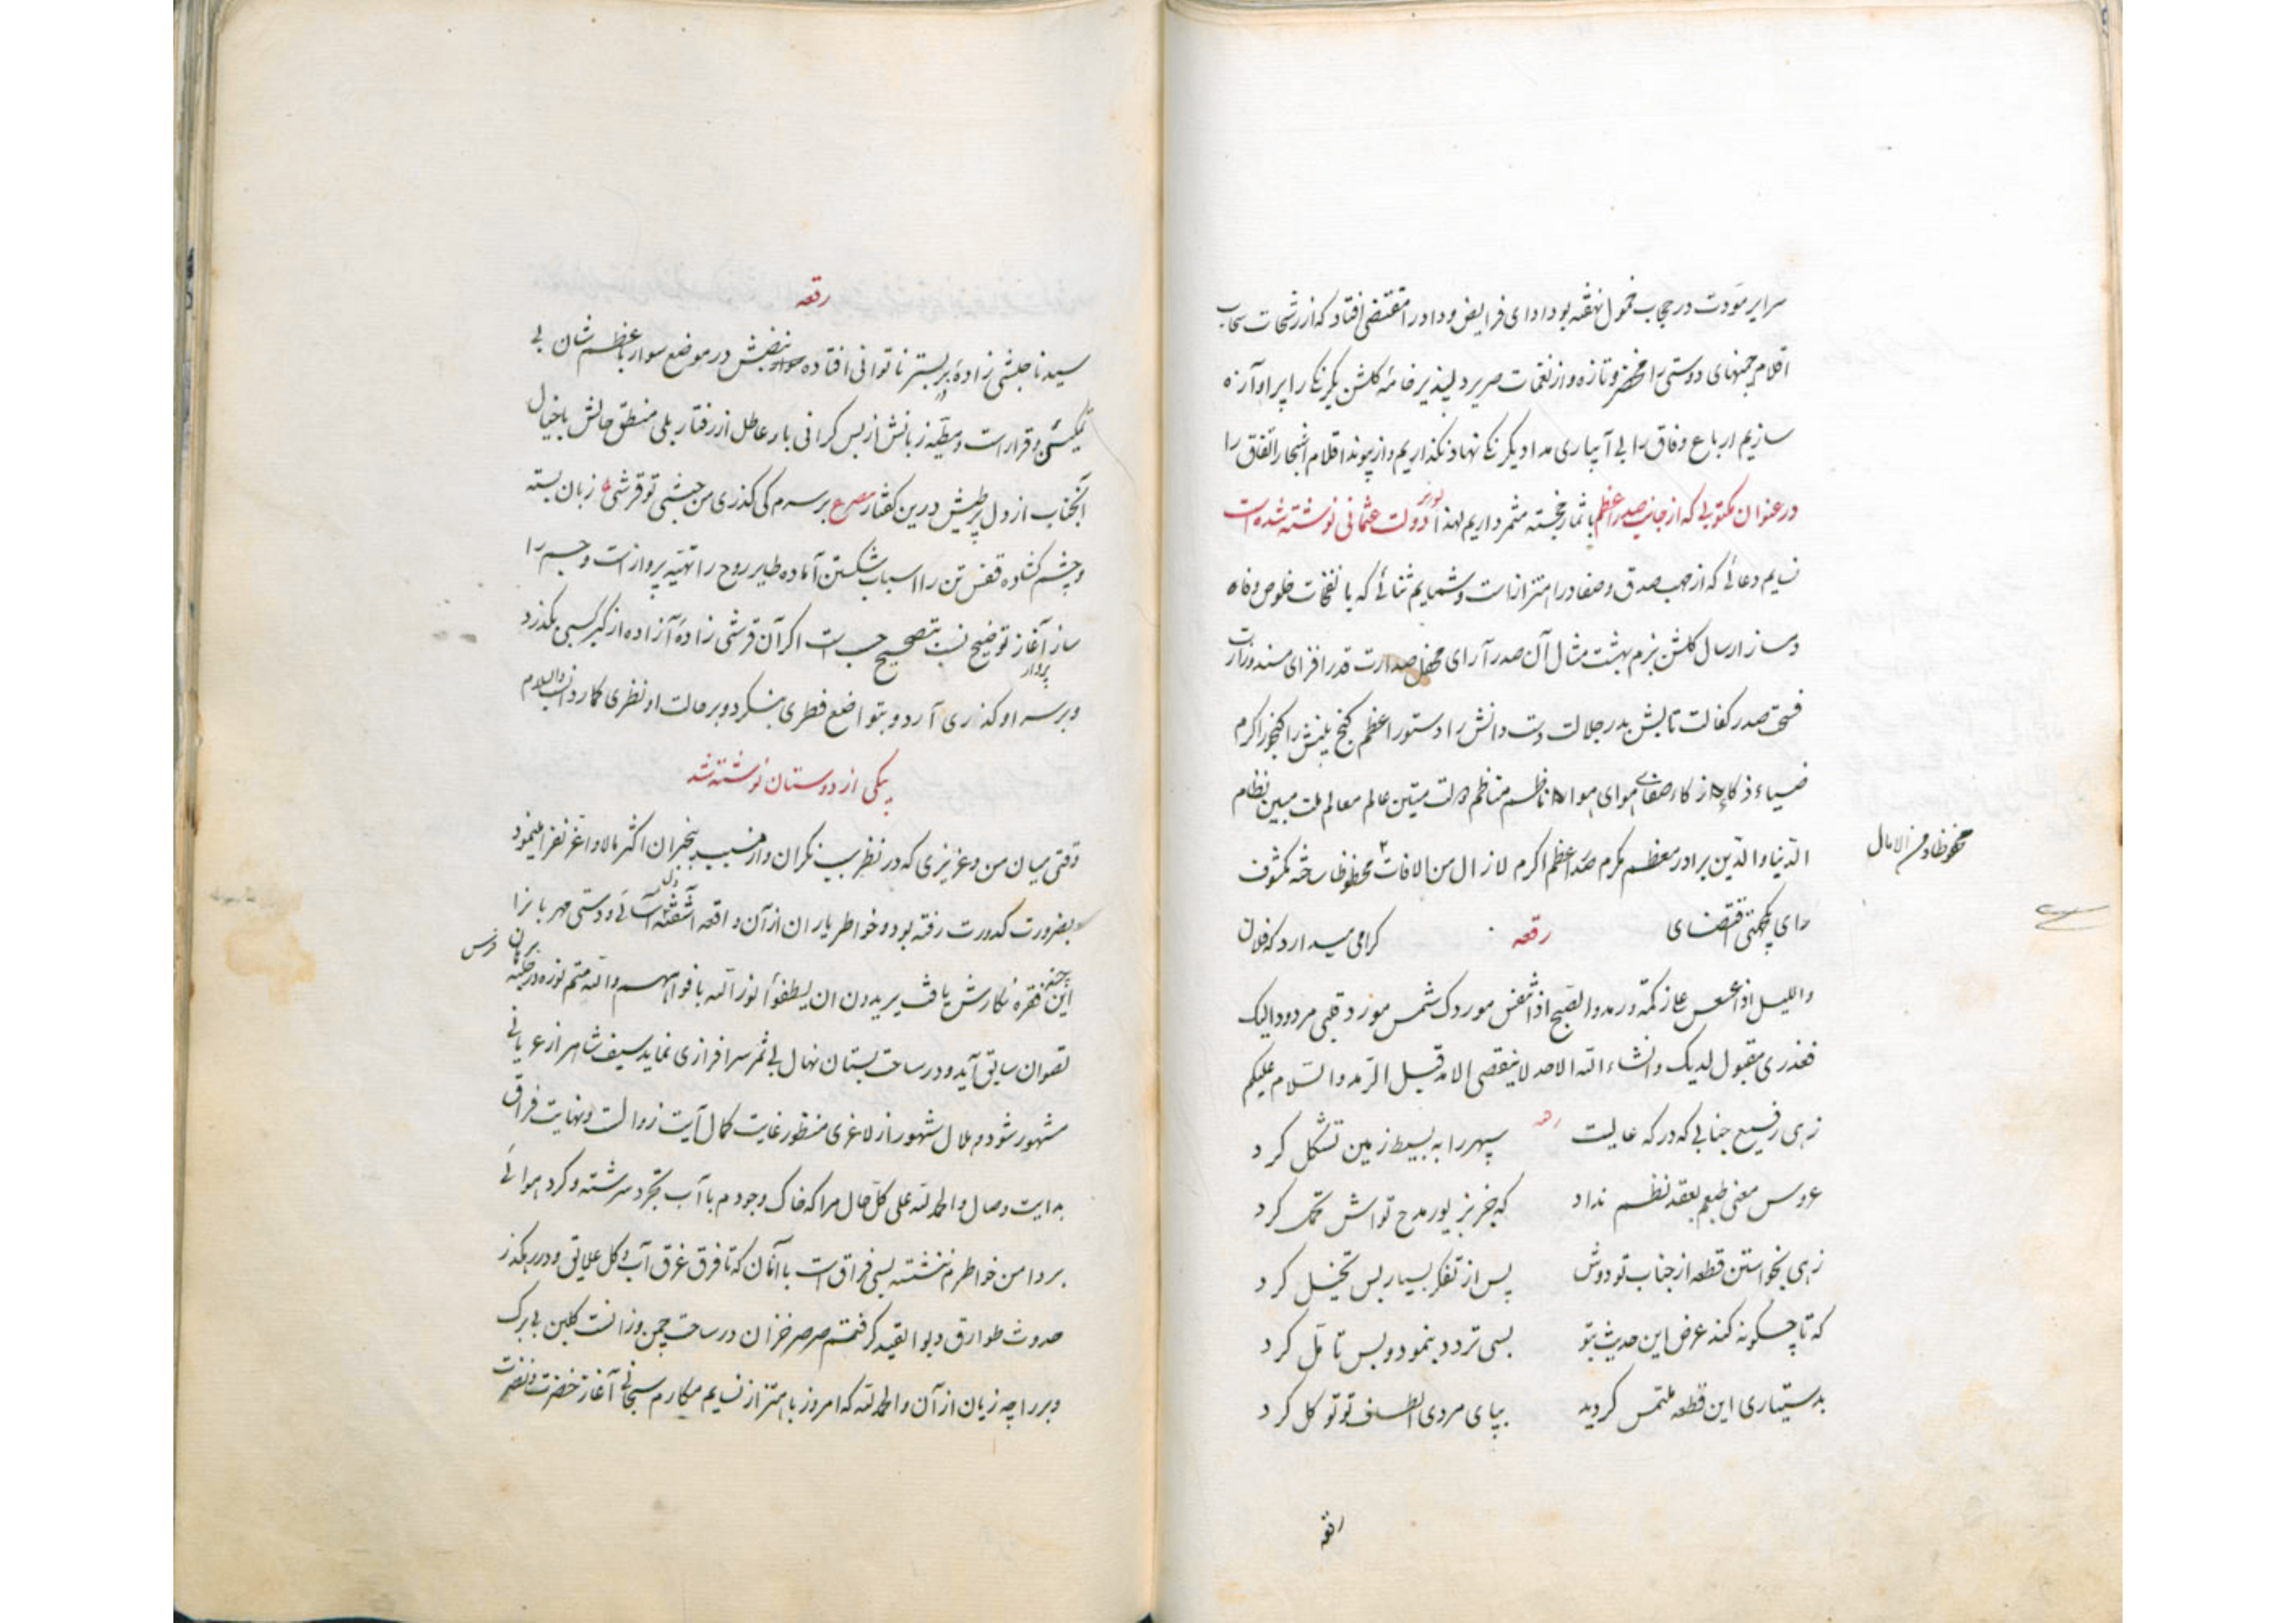 سرایر مودت در حجاب خمول نهفته بود ادای فرایض وداد را مقتضی افتاد که از رشحات سحاب
اقلام چمنهای دوستی را مخضر و تازه و از نغمات صریر دلپذیر خامه گلشن یکرنگی را پر آوازه
سازیم ارباع وفاق را بی آبیاری مداد یکرنگی نهاد نگذاریم و از پیوند اقلام اشجار اتفاق را
باثمار خجسته مثمر داریم لهذا
در عنوان مکتوبی که از جانب صدر اعظم بوزیر دولت عثمانی نوشته شده است
نسایم دعائی که از مهب صدق و صفا در اهتزاز است و شمایم ثنائی که با نفحات خلوص و وفا
دمساز ارسال گلشن بزم بهشت مثال آن صدر آرای محفل صدارت قدر افزای مسند وزارت
فسحت صدر کفالت تابش بدر جلالت دست دانش را دستور اعظم گنج بینش را گنجور اکرم
ضیاء ذکاء صفای هوای ناظم مناظم دولت متین عالم معالم ملت مبین نظام
الدنیا و الدین برادر معظم مکرم صدر اعظم اکرم لازال من الافات محظوظا ساخته مکشوف
محفوظا و من الامال
رای یکجهتی اقتضای گرامی میدارد که فلان
رقعه
واللیل اذا عسعس والصبح اذا تنفس شمس قلبی مردود الیک
فعذری مقبول لدیک و انشاء الله الاحد لاینقضی الامد قبل الرمد والسلام علیکم
رقعه
زهی رفیع جنابی که درگه عالیت سپهر را به بسیط زمین تشکل کرد
عروس معنی طبعم بعقد نظم نداد که جز بزیور مدح تواش تحمل کرد
زهی بخواستن قطعه از جناب تو دوش پس از تفکر بسیار بس تخیل کرد
که تا چگونه کند عرض این حدیث بتو بسی تردد بنمود و بس تامل کرد
بدستیاری این قطعه ملتمس گردید بپای مردی الطاف تو توکل کرد
رقعه
رقعه
سیدنا حبشی زاده بر بستر ناتوانی افتاده نبضش در موضع سوار باعظم شان بی
تمکین و قرار است و مطیه زبانش از بس گرانی بار عاطل از رفتار بلی منطق حالش با خیال
آنجناب از دل پر طپش درین گفتار مصرع بر سرم کی گذری من حبشی تو قرشی زبان بسته
و چشم گشاده قفس تن را اسباب شکستن آماده طایر روح را تهیه پرواز است و جسم را
ساز آغاز توضیح نسبت بتصحیح حسب است اگر آن قرشی زاده آزاده از کبر کسبی بگذرد
و بر سر او گذری آرد و بتواضع فطری بنگرد و بر حالت او نظری گمارد انسب والسلام
بیکی از دوستان نوشته شد
وقتی میان من و عزیزی که در نظر بینگران بیخبران اکثر مالا و اعز نفرا مینمود
بضرورت کدورت رفته بود و خاطر یاران از آن واقعه آشفته آشنائی و دوستی مهربان را
این چند فقره نگارش یافت یریدون ان یطفؤا نور الله بافواههم والله متم نوره در حلبه
سابق آید و در ساحت بستان نهال بی ثمر سرافرازی نماید سیف شاهر از عریانی
مشهور شود و هلال شهور از لاغری منظور غایت کمال آیت زوالست و نهایت فراق
بدایت وصال و الحمد لله علی کل حال مرا که خاک وجودم با آب تجرد سرشته و گرد هوائی
بر دامن خواطرم ننشسته بسی فراق است با آنان که تا فرق غرق آب و گل علایق و در رهگذر
حدوث طوارق و بوایقند گرفتم صرصر خزان در ساحت چمن وزانست گلبن بی برگ
و بر را چه زیان از آن و الحمد لله که امروز باهتزاز نسایم مکارم سبحانی آغاز خضرت و نضرت